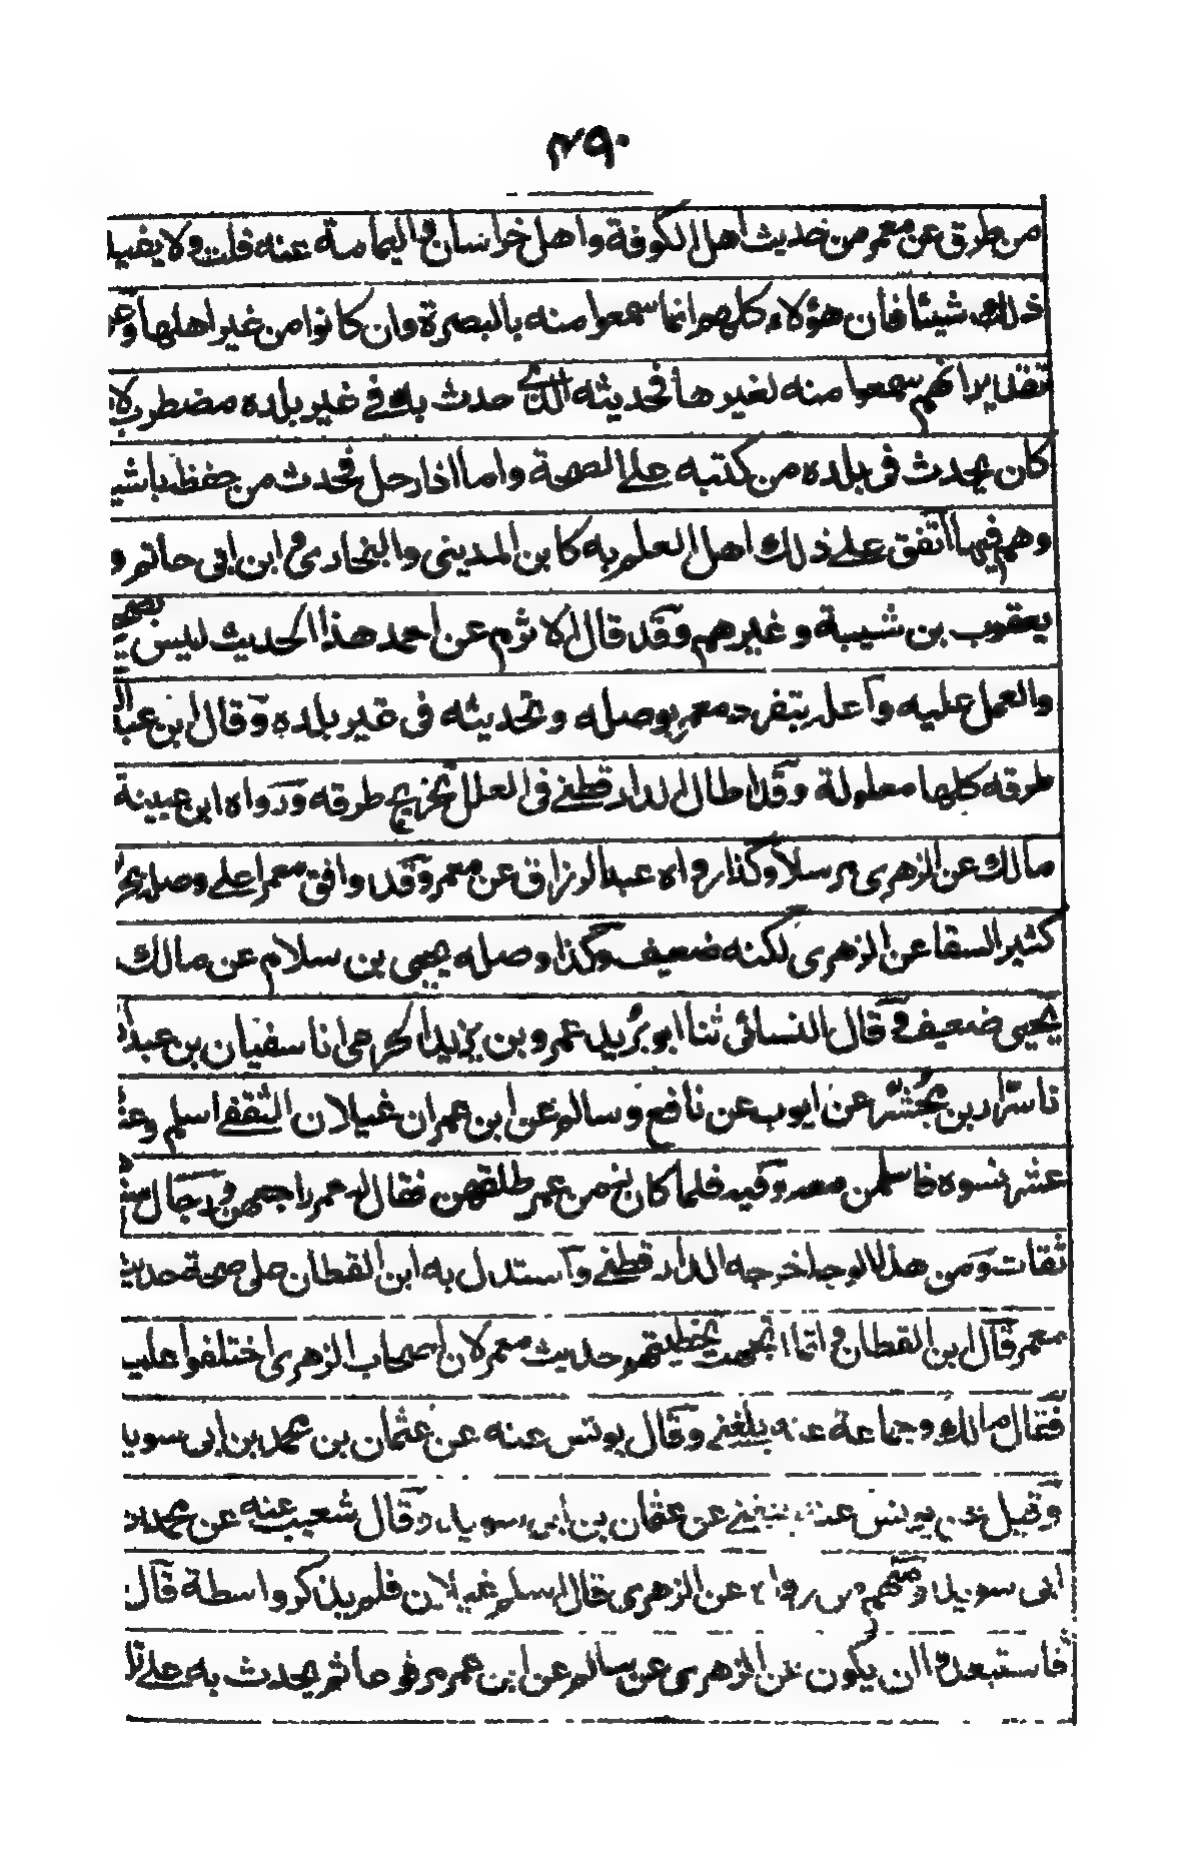 ٢٩٠
من طرق عن معمر من حديث اهل الكوفة واهل خراسان واليمامة عنه قلت ولا يفيد
ذلك شيئا فان هؤلاء كلهم انما سمعوا منه بالبصرة وان كانوا من غير اهلها وعلى
تقدير انهم سمعوا منه لغيرها فحديثه الذي حدث به في غير بلده مضطرب لانه
كان يحدث في بلده من كتبه على الصحة واما اذا رحل فحدث من حفظه باشياء
وهم فيها اتفق على ذلك اهل العلم به كابن المديني والبخاري وابن ابي حاتم و
يعقوب بن شيبة وغيرهم وقد قال الاثرم عن احمد هذا الحديث ليس بصحيح
والعمل عليه واعله بتفرد معمر بوصله وتحديثه في غير بلده وقال ابن عبد البر
طرقه كلها معلولة وقد اطال الدارقطني في العلل تخريج طرقه ورواه ابن عيينة
مالك عن الزهري مرسلا وكذا رواه عبد الرزاق عن معمر وقد وافق معمرا على وصله بحر
كثير السقا عن الزهري لكنه ضعيف وكذا وصله يحيى بن سلام عن مالك
يحيى ضعيف وقال النسائي ثنا ابو بُريد عمرو بن يزيد الجرمي انا سفيان بن عبد الله
نا سرّار بن مُجشّر عن ايوب عن نافع وسالم عن ابن عمر ان غيلان الثقفي اسلم وعنده
عشر نسوة فاسلمن معه وفيه فلما كان زمن عمر طلقهن فقال له عمر راجعهن ورجال
ثقات ومن هذا الوجه اخرجه الدارقطني واستدل به ابن القطان على صحة حديث
معمر قال ابن القطان وانما اتجهت تخطيتهم حديث معمر لان اصحاب الزهري اختلفوا عليه
فقال مالك وجماعة عنه بلغني وقال يونس عنه عن عثمان بن محمد بن ابي سويد
وقيل عن يونس عنه بلغني عن عثمان بن ابي سويد وقال شعيب عنه عن محمد بن
ابي سويد ومنهم من رواه عن الزهري قال اسلم غيلان فلم يذكر واسطة قال
فاستبعدوا ان يكون عن الزهري عن سالم عن ابن عمر مرفوعا ثم يحدث به على